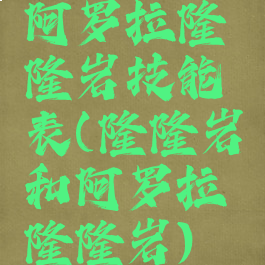 阿罗拉隆
隆岩技能
表(隆隆岩
和阿罗拉
隆隆岩)